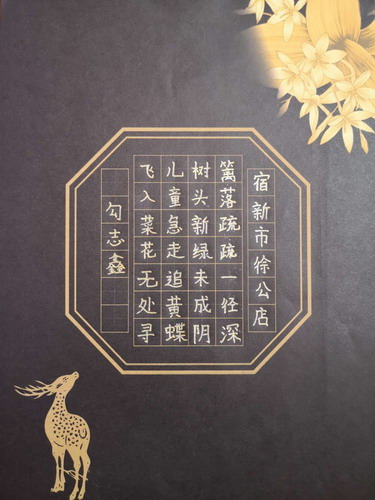 宿新市徐公店
篱落疏疏一径深
树头新绿未成阴
儿童急走追黄蝶
飞入菜花无处寻
勾志鑫